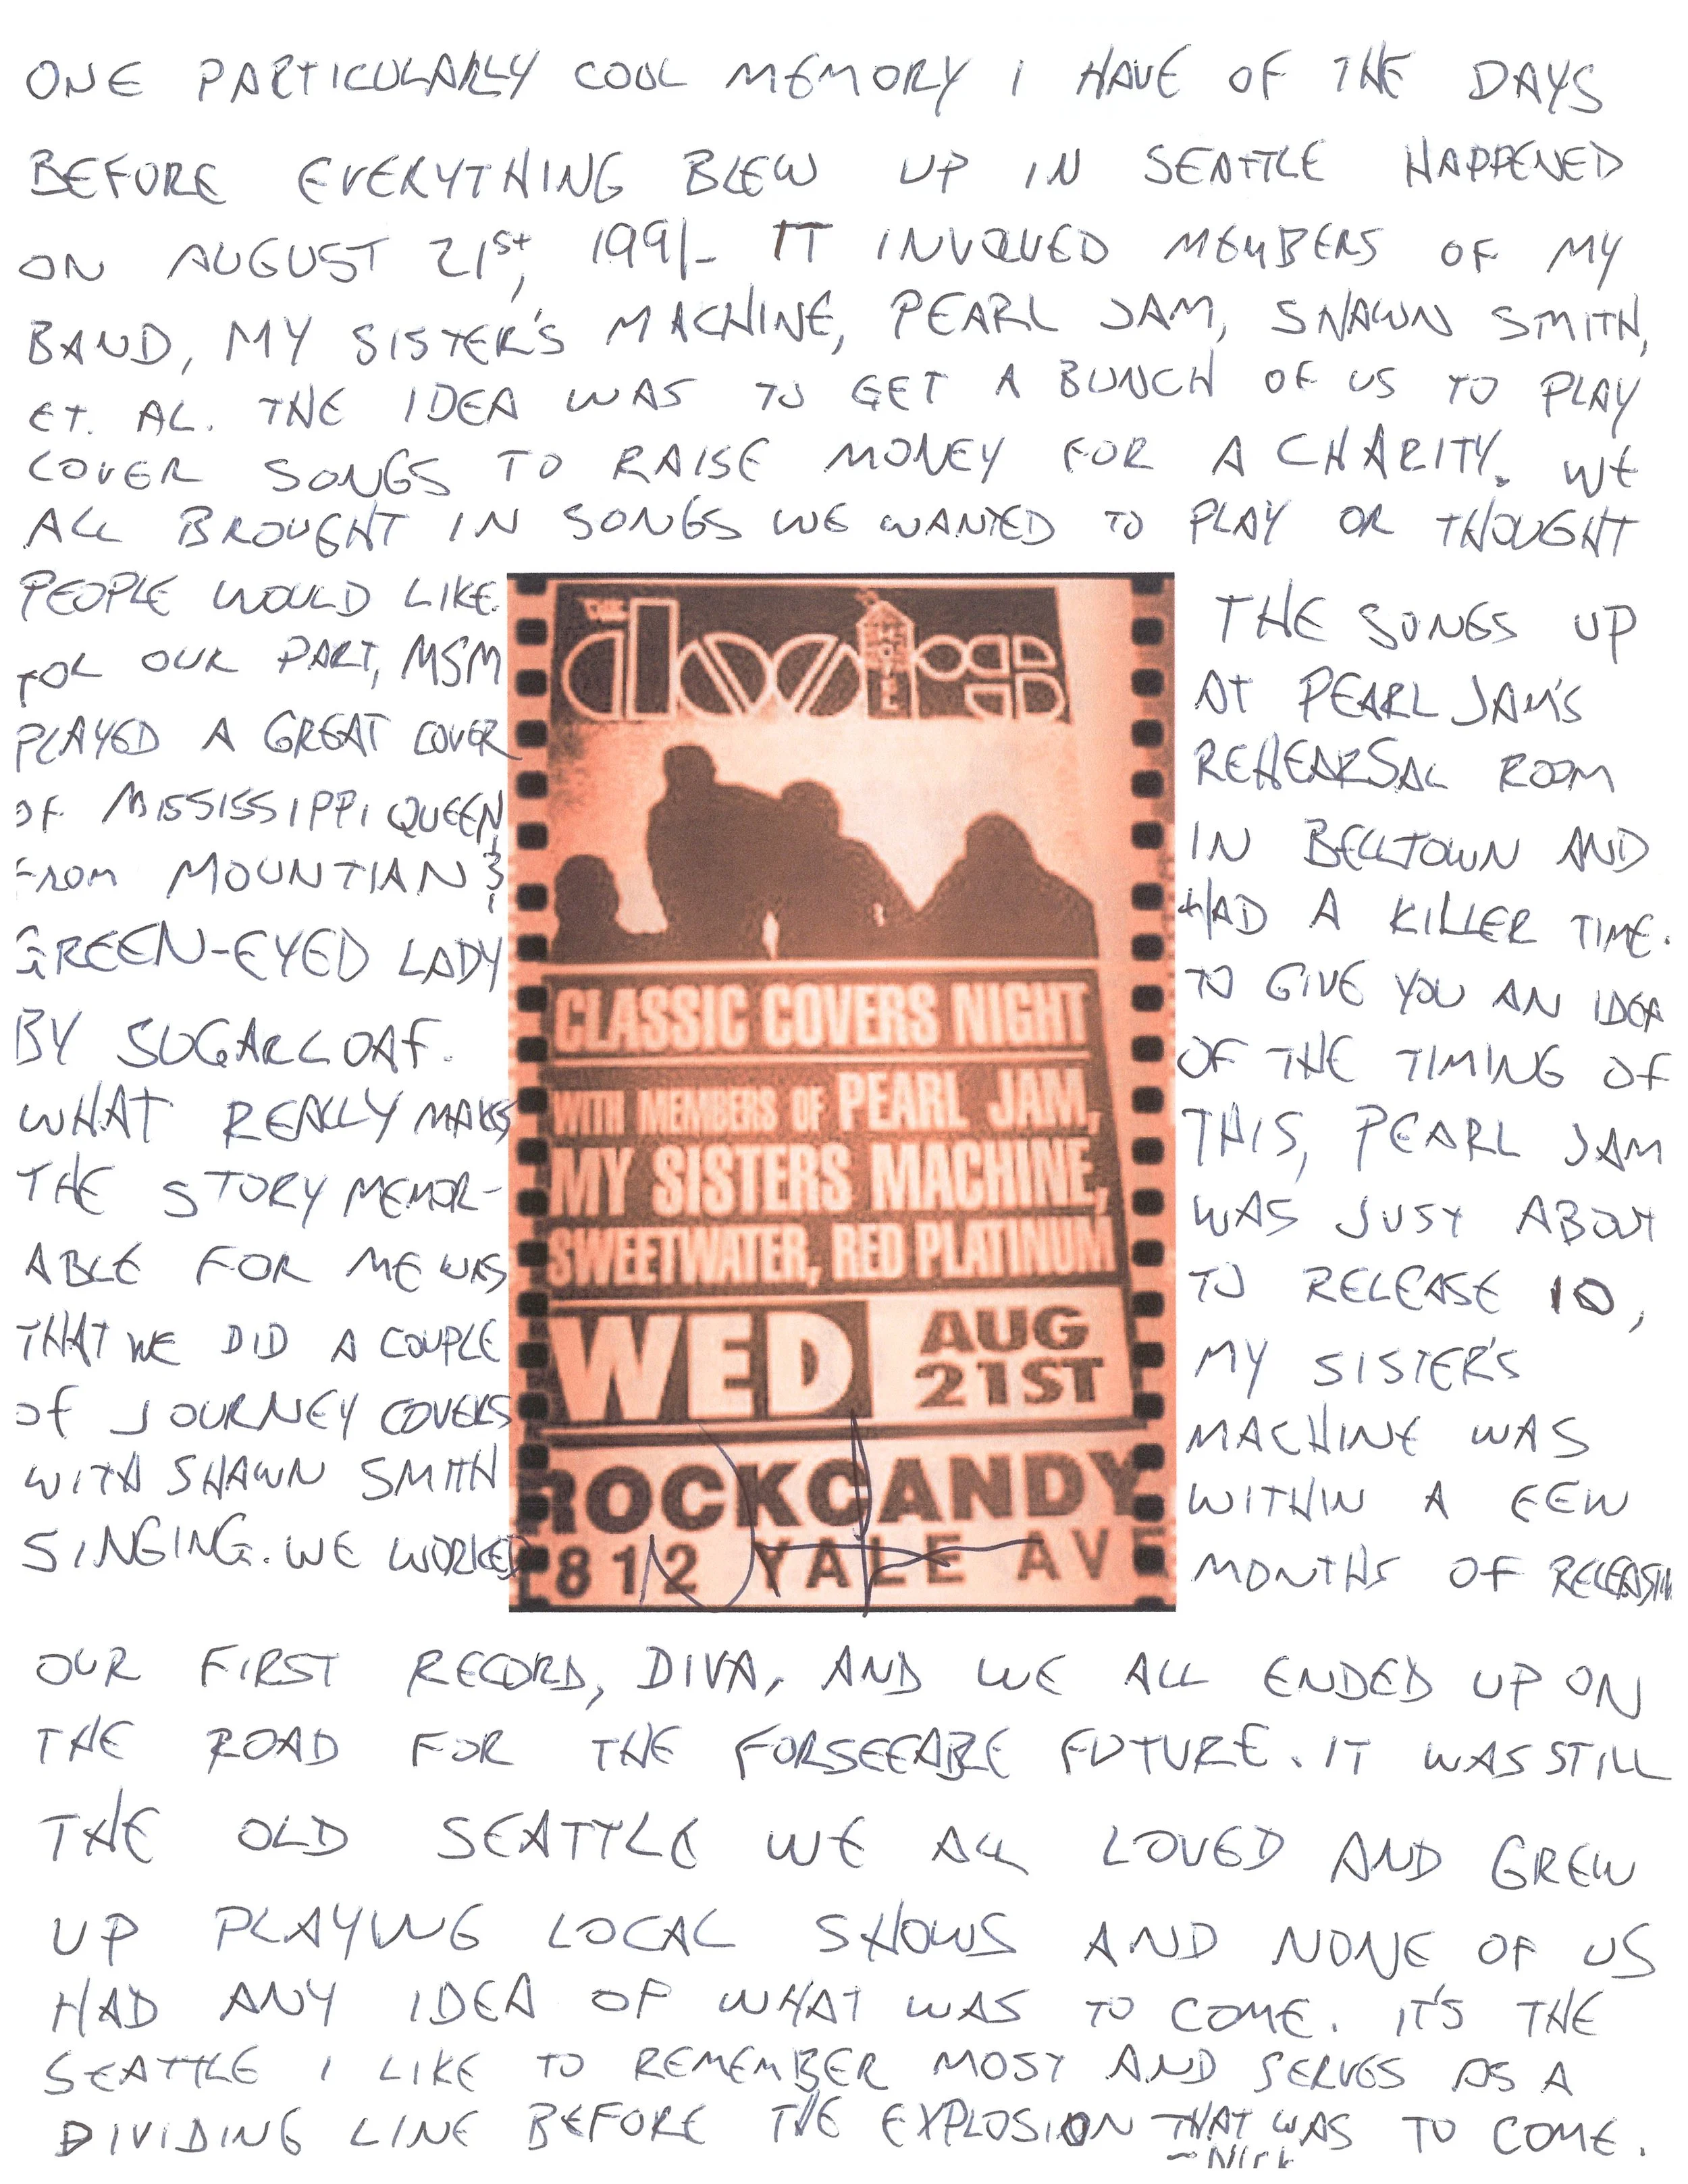 ONE PARTICULARLY COOL MEMORY I HAVE OF THE DAYS
BEFORE EVERYTHING BLEW UP IN SEATTLE HAPPENED
ON AUGUST 21st, 1991- IT INVOLVED MEMBERS OF MY
BAND, MY SISTER'S MACHINE, PEARL JAM, SHAWN SMITH,
ET. AL. THE IDEA WAS TO GET A BUNCH OF US TO PLAY
COVER SONGS TO RAISE MONEY FOR A CHARITY. WE
ALL BROUGHT IN SONGS WE WANTED TO PLAY OR THOUGHT
PEOPLE WOULD LIKE.
FOR OUR PART, MSM
PLAYED A GREAT COVER
OF MISSISSIPPI QUEEN
FROM MOUNTIAN &
GREEN-EYED LADY
BY SUGARLOAF.
WHAT REALLY MAKES
THE STORY MEMOR-
ABLE FOR ME WAS
THAT WE DID A COUPLE
OF JOURNEY COVERS
WITH SHAWN SMITH
SINGING. WE WORKED
THE doors
MOTEL
CLASSIC COVERS NIGHT
WITH MEMBERS OF PEARL JAM,
MY SISTERS MACHINE,
SWEETWATER, RED PLATINUM
WED AUG
21ST
ROCKCANDY
812 YALE AVE
THE SONGS UP
AT PEARL JAM'S
REHEARSAL ROOM
IN BELLTOWN AND
HAD A KILLER TIME.
TO GIVE YOU AN IDEA
OF THE TIMING OF
THIS, PEARL JAM
WAS JUST ABOUT
TO RELEASE 10,
MY SISTER'S
MACHINE WAS
WITHIN A FEW
MONTHS OF RELEASING
OUR FIRST RECORD, DIVA, AND WE ALL ENDED UP ON
THE ROAD FOR THE FORSEEABLE FUTURE. IT WAS STILL
THE OLD SEATTLE WE ALL LOVED AND GREW
UP PLAYING LOCAL SHOWS AND NONE OF US
HAD ANY IDEA OF WHAT WAS TO COME. IT'S THE
SEATTLE I LIKE TO REMEMBER MOST AND SERVES AS A
DIVIDING LINE BEFORE THE EXPLOSION THAT WAS TO COME.
~Nick